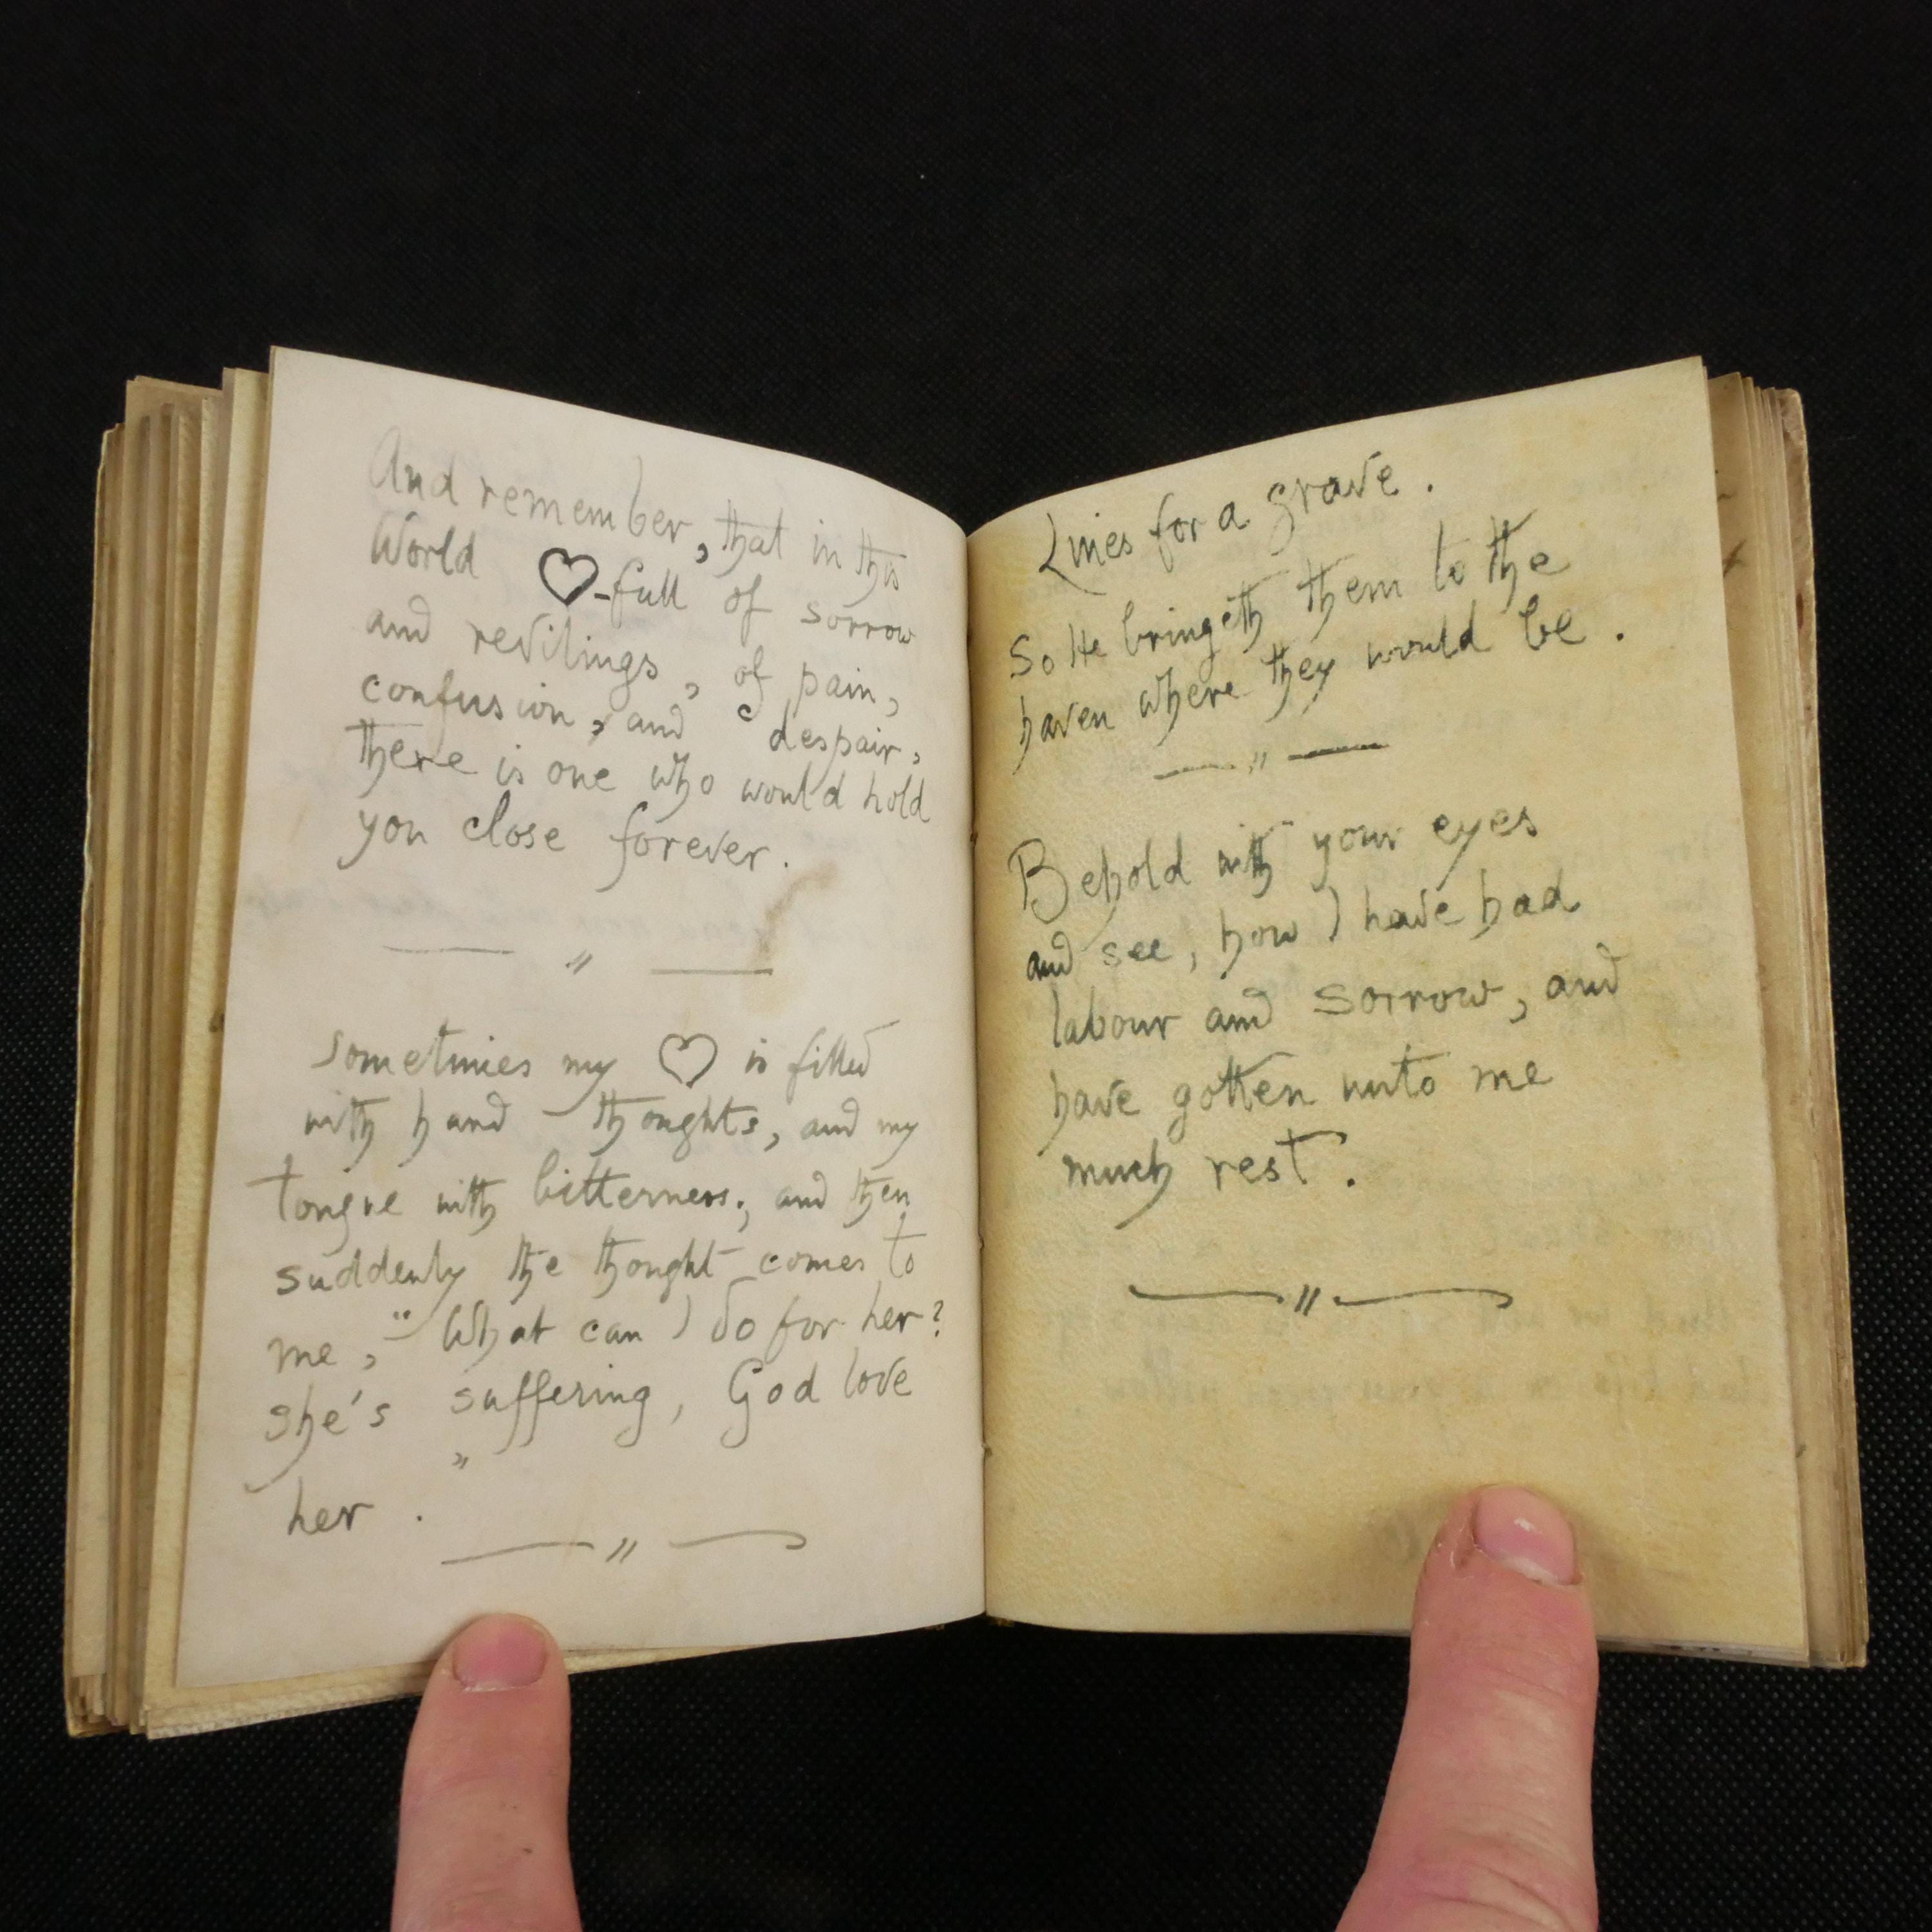 And remember, that in this
World ♡-full of sorrow
and revilings, of pain,
confusion, and despair,
there is one who would hold
you close forever.
— " —
Sometimes my ♡ is filled
with hard thoughts, and my
tongue with bitterness; and then
suddenly the thought comes to
me, "What can I do for her?
She's suffering, God love
her."
— " —
Lines for a grave.
So He bringeth them to the
haven where they would be.
— " —
Behold with your eyes
and see, how I have had
labour and sorrow, and
have gotten unto me
much rest.
— " —